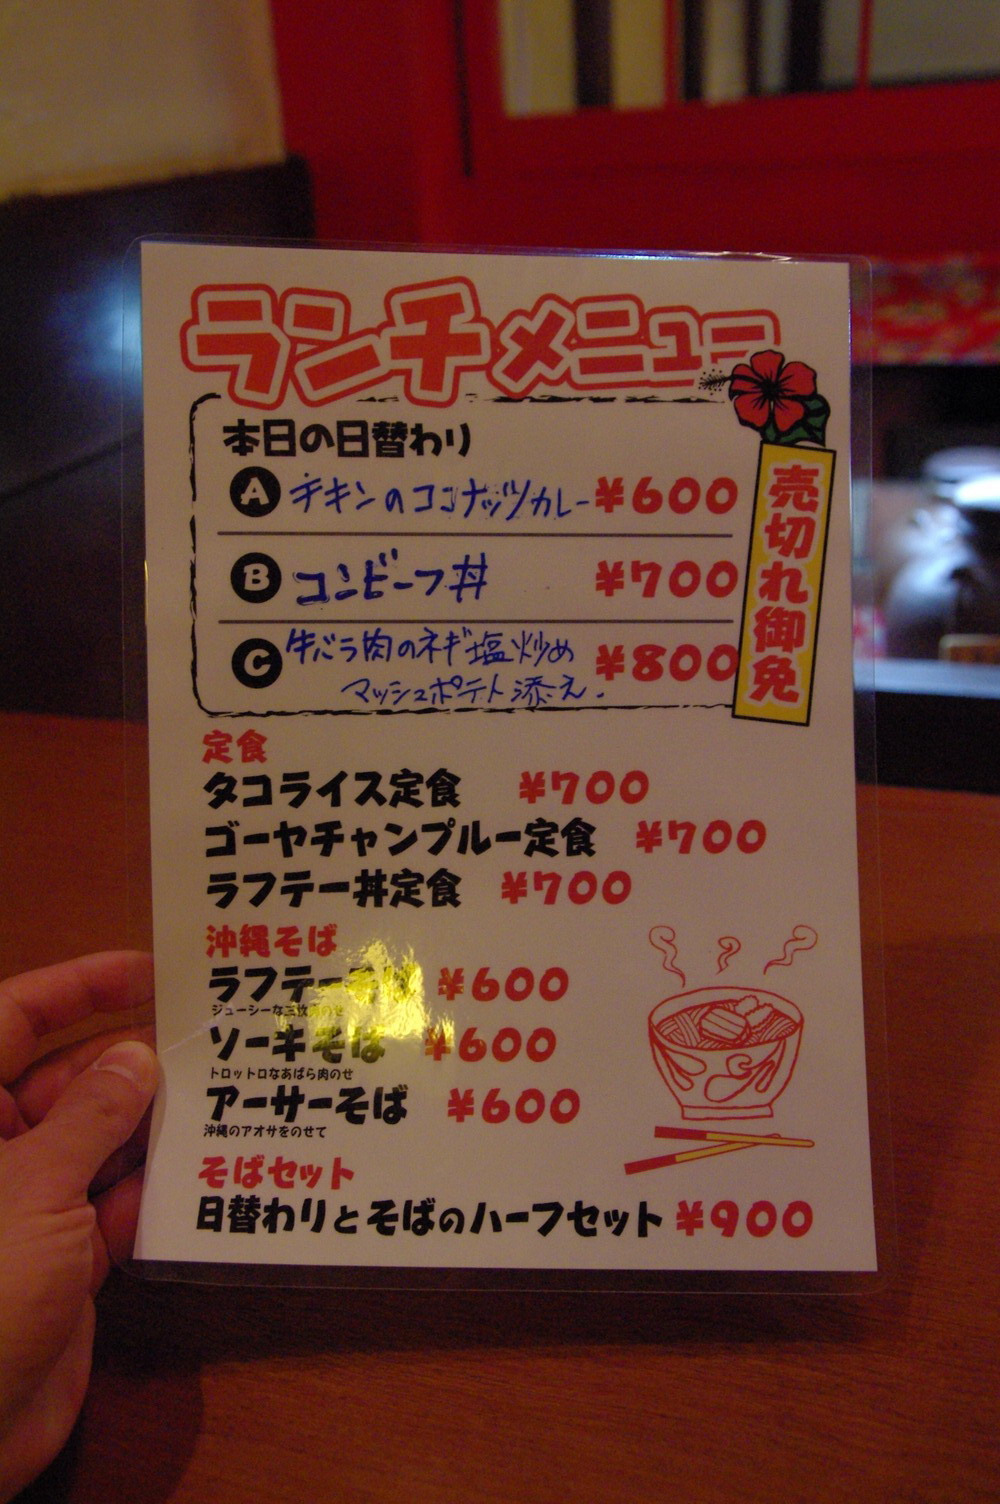 ランチメニュー
本日の日替わり
A チキンのココナッツカレー ¥600
B コンビーフ丼 ¥700
C 牛バラ肉のネギ塩炒め ¥800
マッシュポテト添え.
売切れ御免
定食
タコライス定食 ¥700
ゴーヤチャンプルー定食 ¥700
ラフテー丼定食 ¥700
沖縄そば
ラフテーそば ¥600
ジューシーな三枚肉のせ
ソーキそば ¥600
トロットロなあばら肉のせ
アーサーそば ¥600
沖縄のアオサをのせて
そばセット
日替わりとそばのハーフセット ¥900